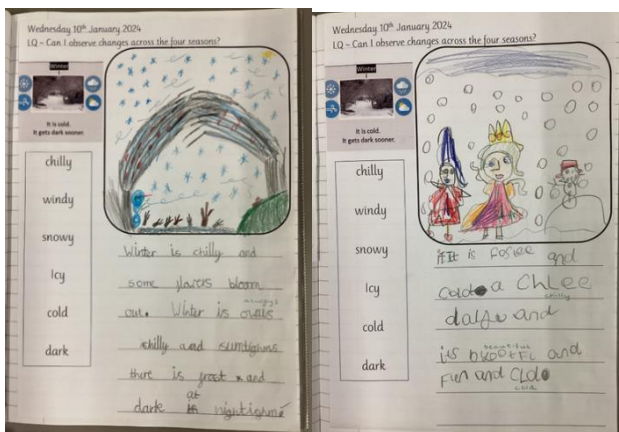 Wednesday 10th January 2024
LQ – Can I observe changes across the four seasons?
Winter
It is cold.
It gets dark sooner.
chilly
windy
snowy
Icy
cold
dark
Winter is chilly and
some flowers bloom
out. Winter is
always
chilly and sumtighms
there is frost and
at
dark nightighme
Wednesday 10th January 2024
LQ – Can I observe changes across the four seasons?
Winter
It is cold.
It gets dark sooner.
chilly
windy
snowy
Icy
cold
dark
It is and
cold a CHLee
chilly
and
beautiful
its and
Fun and CLd
cold